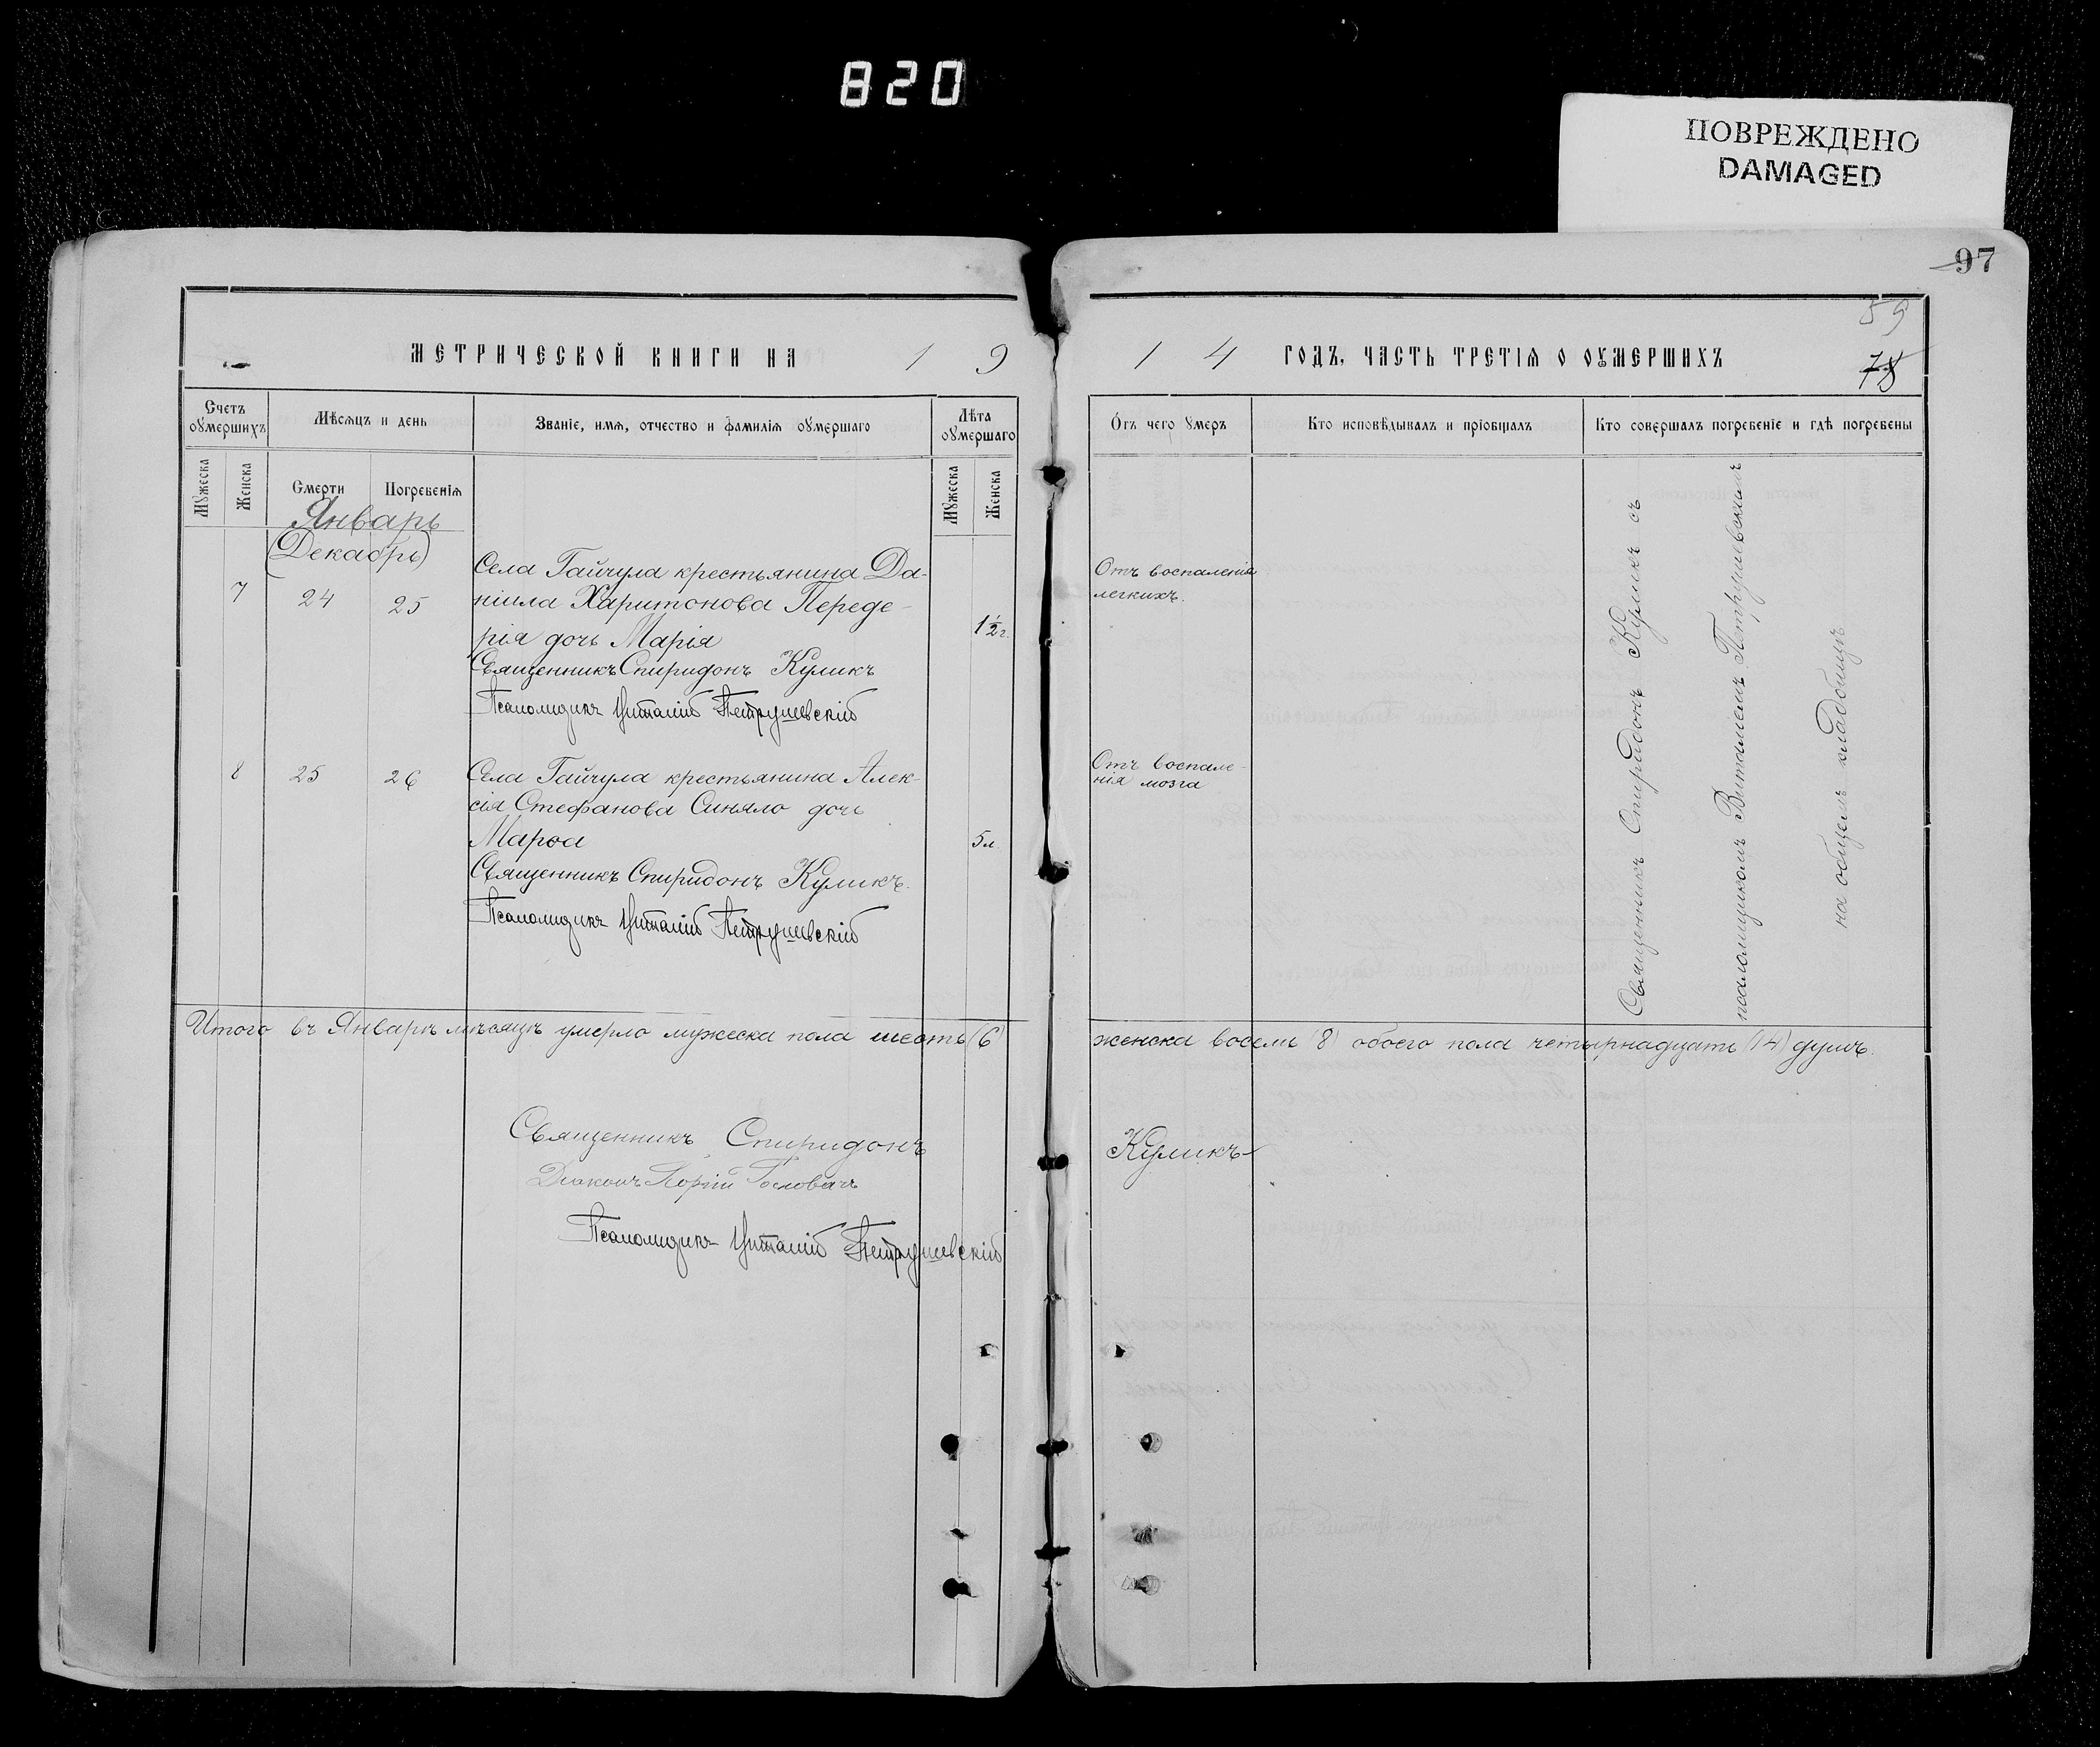 820
ПОВРЕЖДЕНО
DAMAGED
97
59
78
МЕТРИЧЕСКОЙ КНИГИ НА 19
14 ГОДЪ, ЧАСТЬ ТРЕТІЯ О ОУМЕРШИХЪ
Счетъ оумершихъ
Мѣсяцъ и день
Званіе, имя, отчество и фамилія оумершаго
Лѣта оумершаго
Мужеска
Женска
Смерти
Погребенія
Мужеска
Женска
Январь
(Декабрь)
7
24
25
Села Гайчула крестьянина Да-
ніила Харитонова Переде-
рія дочь Марія
1½ г.
Священникъ Спиридонъ Куликъ
Псаломщикъ Виталій Петрушевскій
8
25
26
Села Гайчула крестьянина Алек-
сія Стефанова Синяло дочь
Марѳа
5 л.
Священникъ Спиридонъ Куликъ.
Псаломщикъ Виталій Петрушевскій
Итого въ Январѣ мѣсяцѣ умерло мужеска пола шесть (6)
Священникъ Спиридонъ
Діаконъ
Псаломщикъ Виталій Петрушевскій
Отъ чего умеръ
Кто исповѣдывалъ и пріобщалъ
Кто совершалъ погребеніе и гдѣ погребены
Отъ воспаленія
легкихъ.
Отъ воспале-
нія мозга
Священникъ Спиридонъ Куликъ съ
псаломщикомъ Виталіемъ Петрушевскимъ
на общемъ кладбищѣ
женска восемь (8) обоего пола четырнадцать (14) душъ.
Куликъ